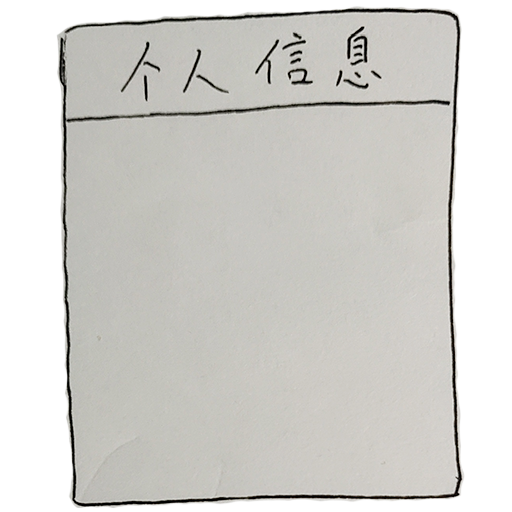 个人信息